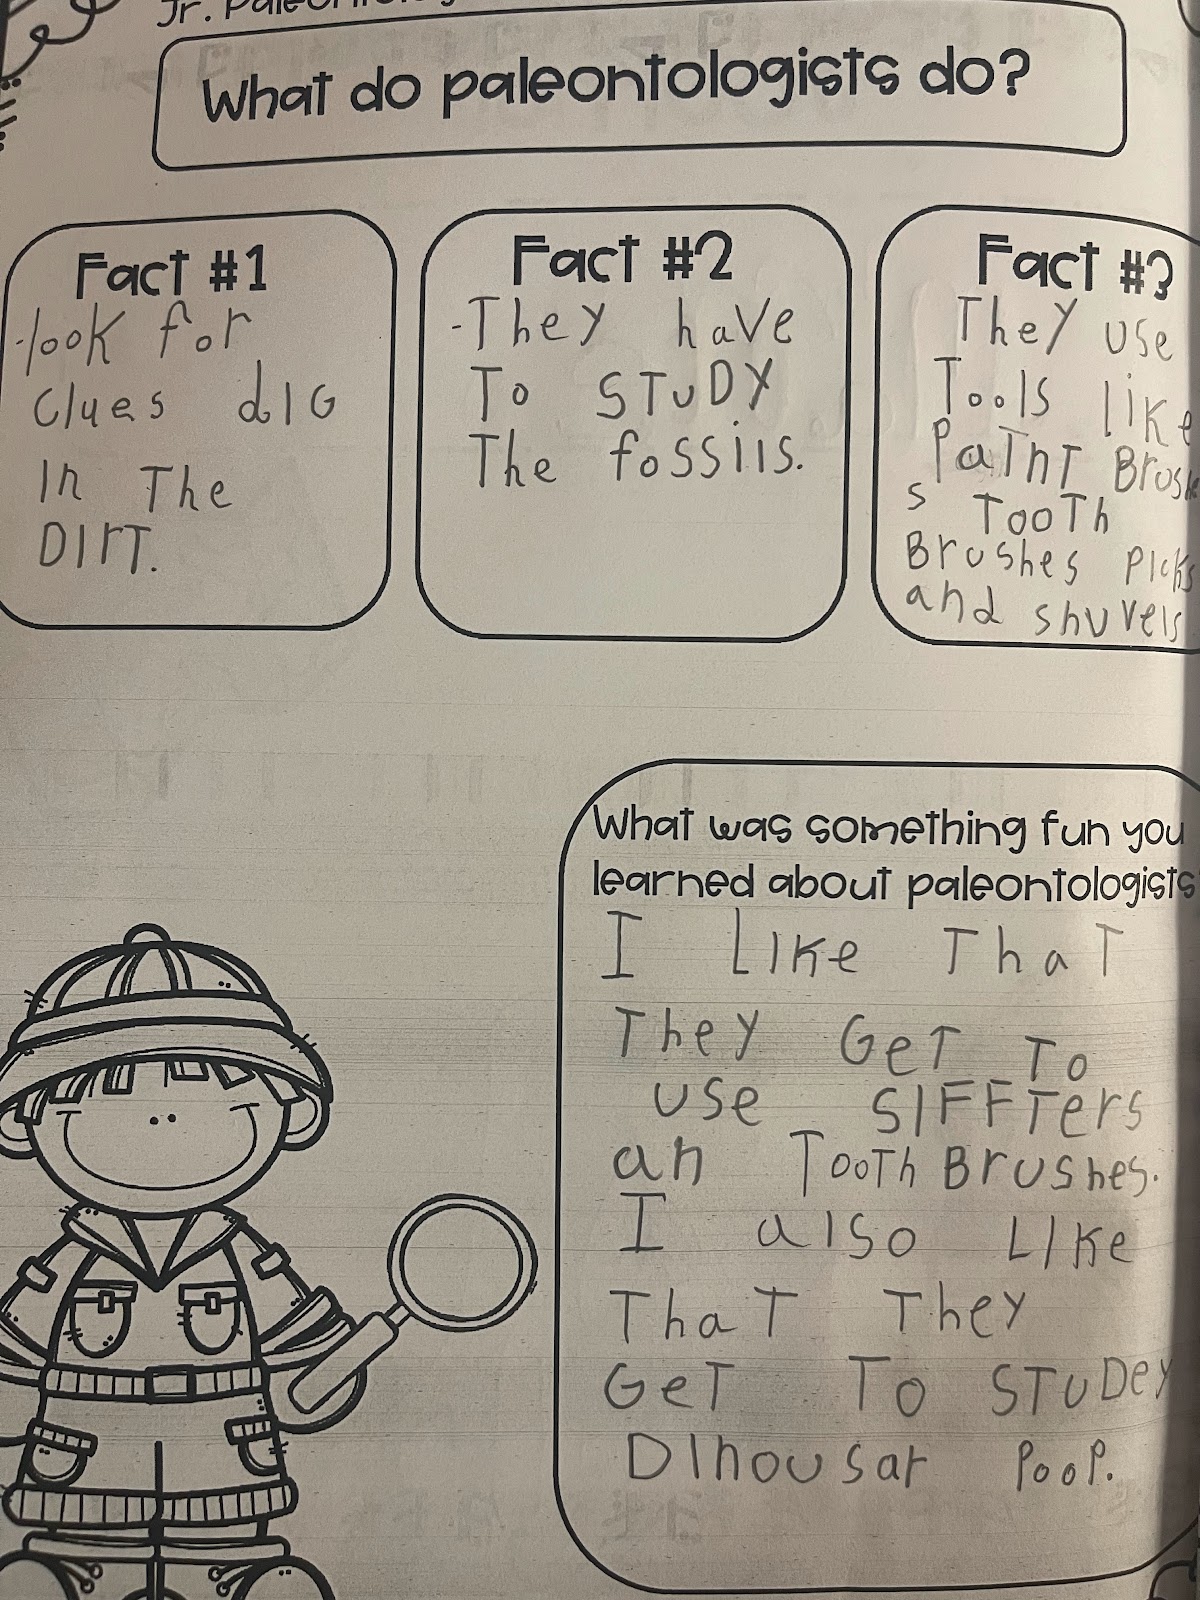 Jr. Paleontolog
What do paleontologists do?
Fact #1
-look for
clues dIG
In The
DIrT.
Fact #2
-They have
To STuDY
The fossils.
Fact #3
They use
Tools like
PaInT Brushe
s TooTh
Brushes PIcks
and shuvels
What was something fun you
learned about paleontologists
I LIke ThaT
They GeT To
use SIFFTers
an TooTh Brushes.
I also LIke
ThaT They
GeT To STuDey
DInousar PooP.